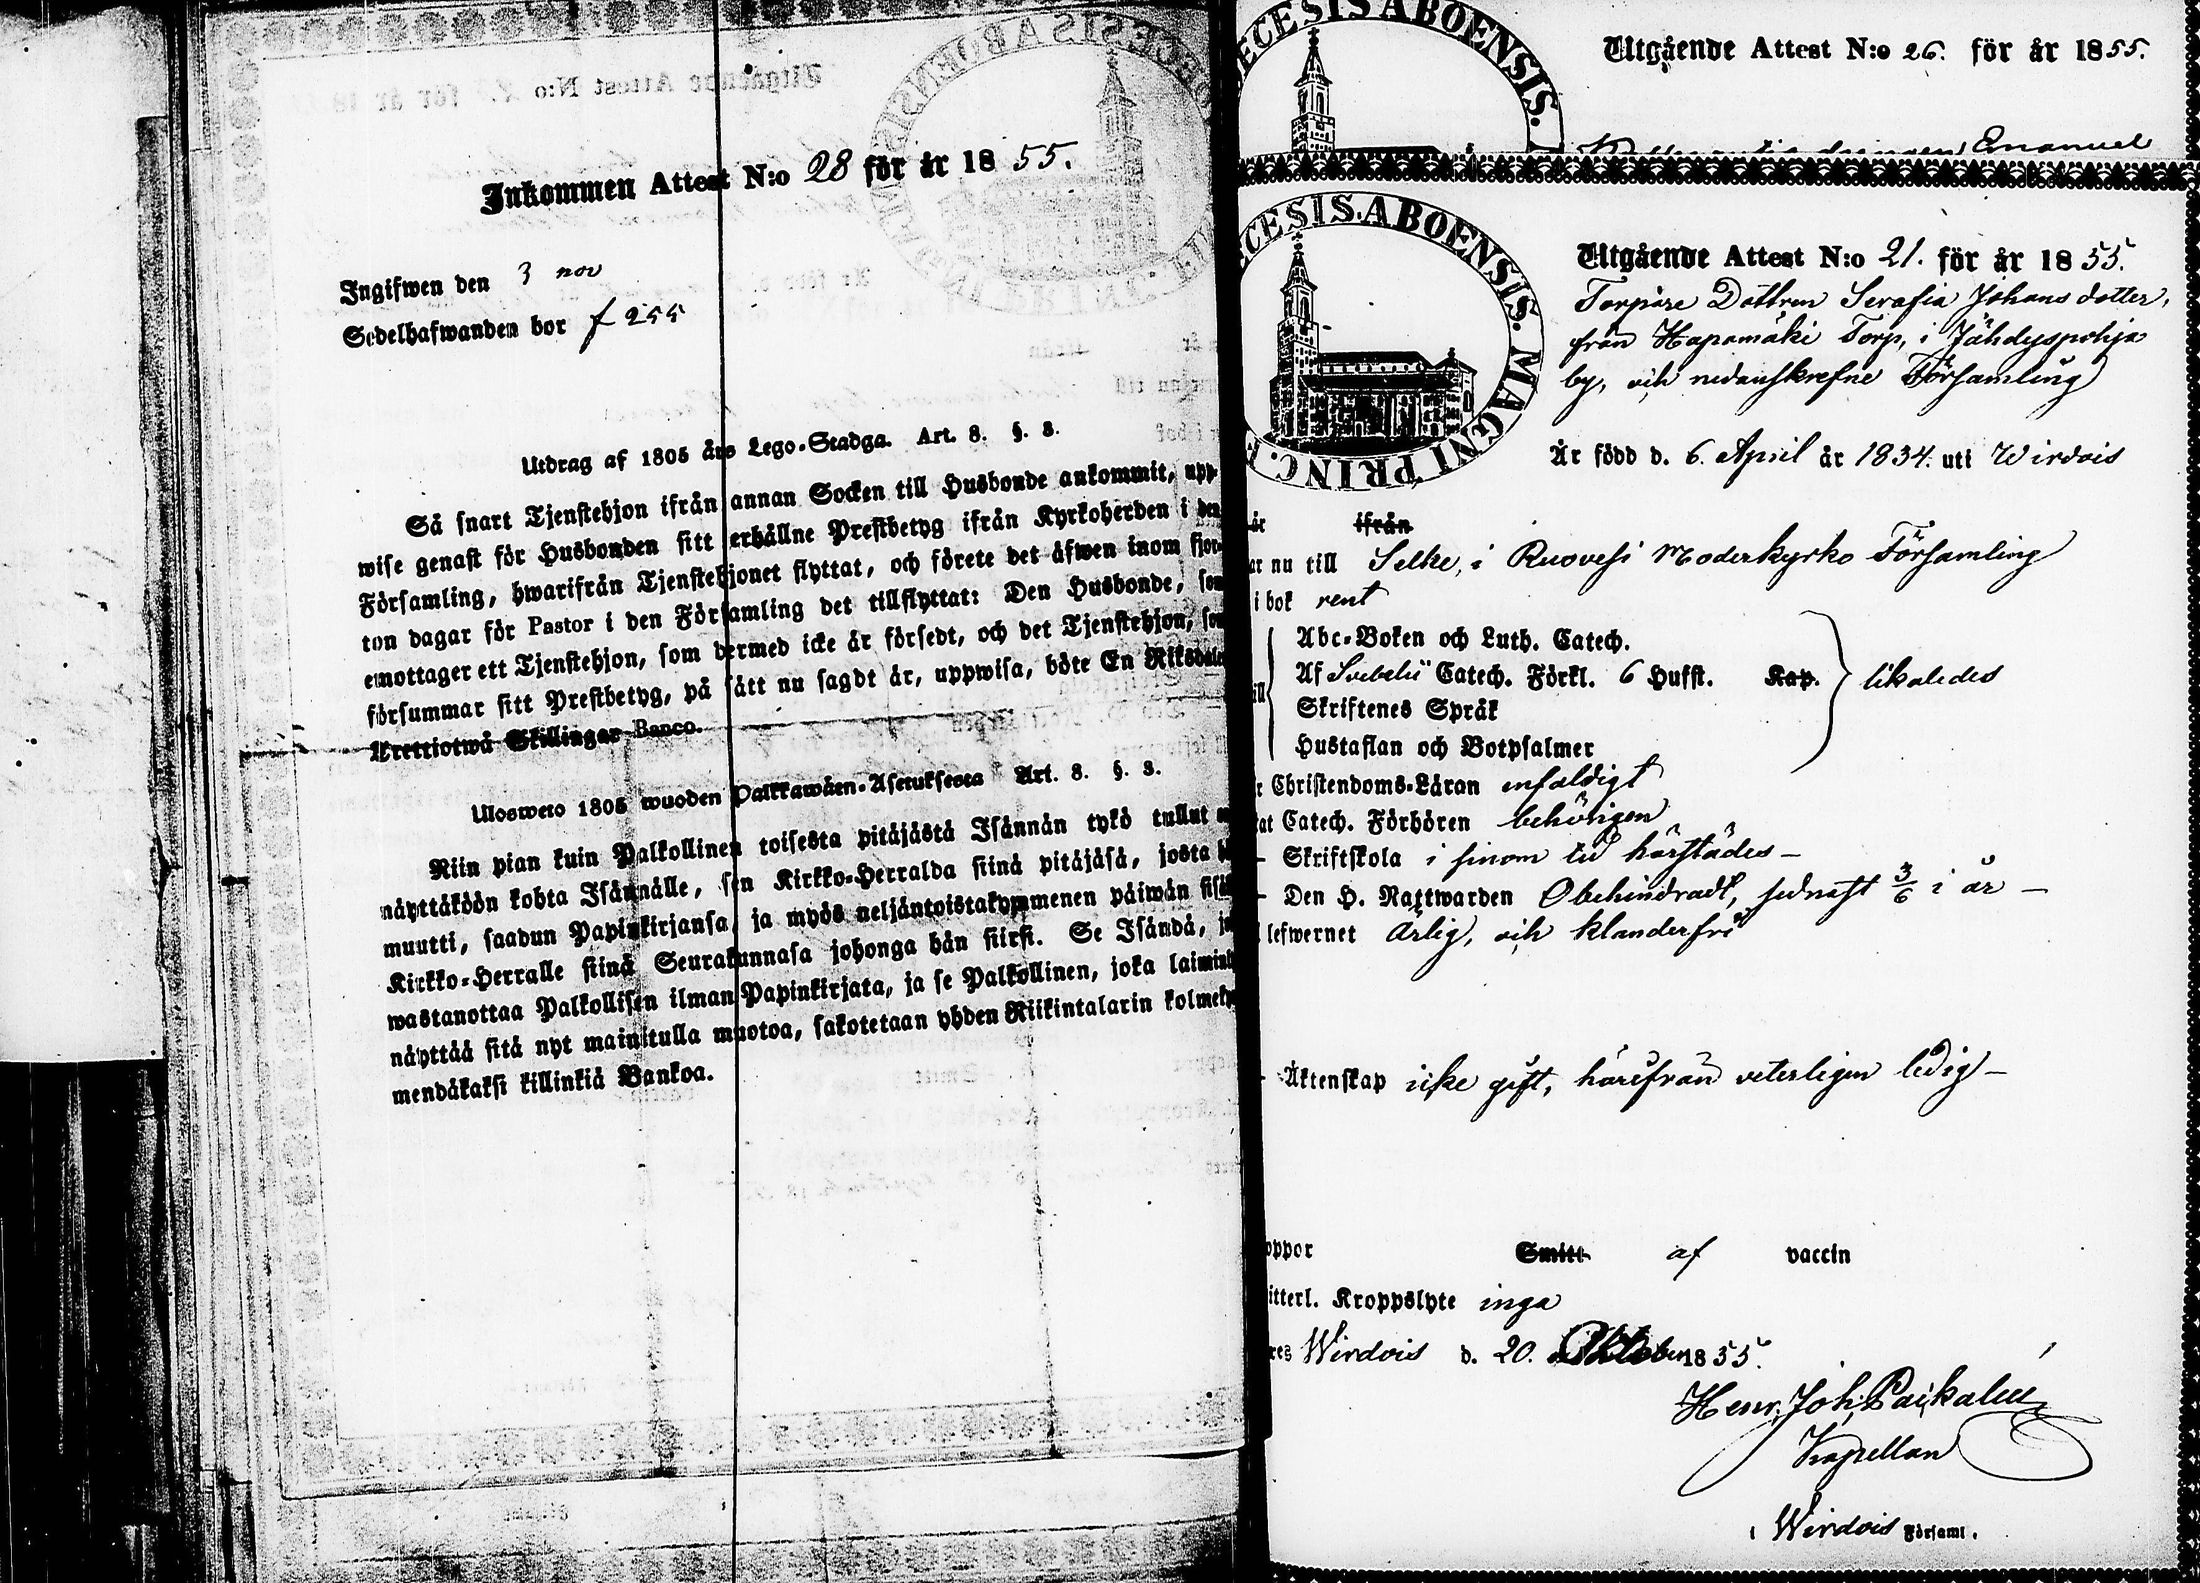 Inkommen Attest N:o 28 för år 1855.
Ingifwen den 3 nov
Sedelhafwanden bor f 255
Utdrag af 1805 års Lego-Stadga. Art. 8. §. 3.
Så snart Tjenstehjon ifrån annan Socken till Husbonde ankommit, upp-
wise genast för Husbonden sitt erhållne Prestbetyg ifrån Kyrkoherden i den
Församling, hwarifrån Tjenstehjonet flyttat, och förete det äfwen inom fjor-
ton dagar för Pastor i den Församling det tillflyttat: Den Husbonde, som
emottager ett Tjenstehjon, som dermed icke är försedt, och det Tjenstehjon, som
försummar sitt Prestbetyg, på sätt nu sagdt är, uppwisa, böte En Riksdaler
Trettiotwå Skillingar Banco.
Ulosweto 1805 wuoden Palkkawäen-Asetuksesta Art. 8. §. 3.
Niin pian kuin Palkollinen toisesta pitäjästä Isännän tykö tullut on
näyttäköön kohta Isännälle, sen Kirkko-Herralda siinä pitäjäsä, josta hän
muutti, saadun Papinkirjansa, ja myös neljäntoistakymmenen päiwän sisäl
Kirkko-Herralle siinä Seurakunnasa johonga hän siirsi. Se Isändä, jo
wastanottaa Palkollisen ilman Papinkirjata, ja se Palkollinen, joka laimin
näyttää sitä nyt mainitulla muotoa, sakotetaan yhden Riikintalarin kolmeky
mendäkaksi killinkiä Bankoa.
DECESIS ABOENSIS.
Utgående Attest N:o 26. för år 1855.
Emanuel
ECESIS. ABOENSIS. MAGNI PRINC. F
Utgående Attest N:o 21. för år 1855.
Torpare Dottren Serafia Johans dotter,
från Hapamäki Torp, i Jähdyspohja
by, och nedanskrefne Församling
Är född d. 6. April år 1834. uti Wirdois
är ifrån
ar nu till Selke, i Ruovesi Moderkyrko Församling
i bok rent
Abc-Boken och Luth. Catech.
Af Svebelii Catech. Förkl. 6 Hufst. Kap. likaledes
Skriftenes Språk
Hustaflan och Botpsalmer
r Christendoms-Läran enfaldigt
tat Catech. Förhören behörigen
- Skriftskola i sinom tid härstädes -
- Den H. Nattwarden Obehindradt, sednast 3/6 i år -
lefwernet Ärlig, och klanderfri
- Äktenskap icke gift, härifrån veterligen ledig -
oppor Smitt af vaccin
itterl. Kroppslyte inga
res Wirdois d. 20. Oktober 1855.
Henr. Joh. Paikalin
Kapellan
i Wirdois Församl.